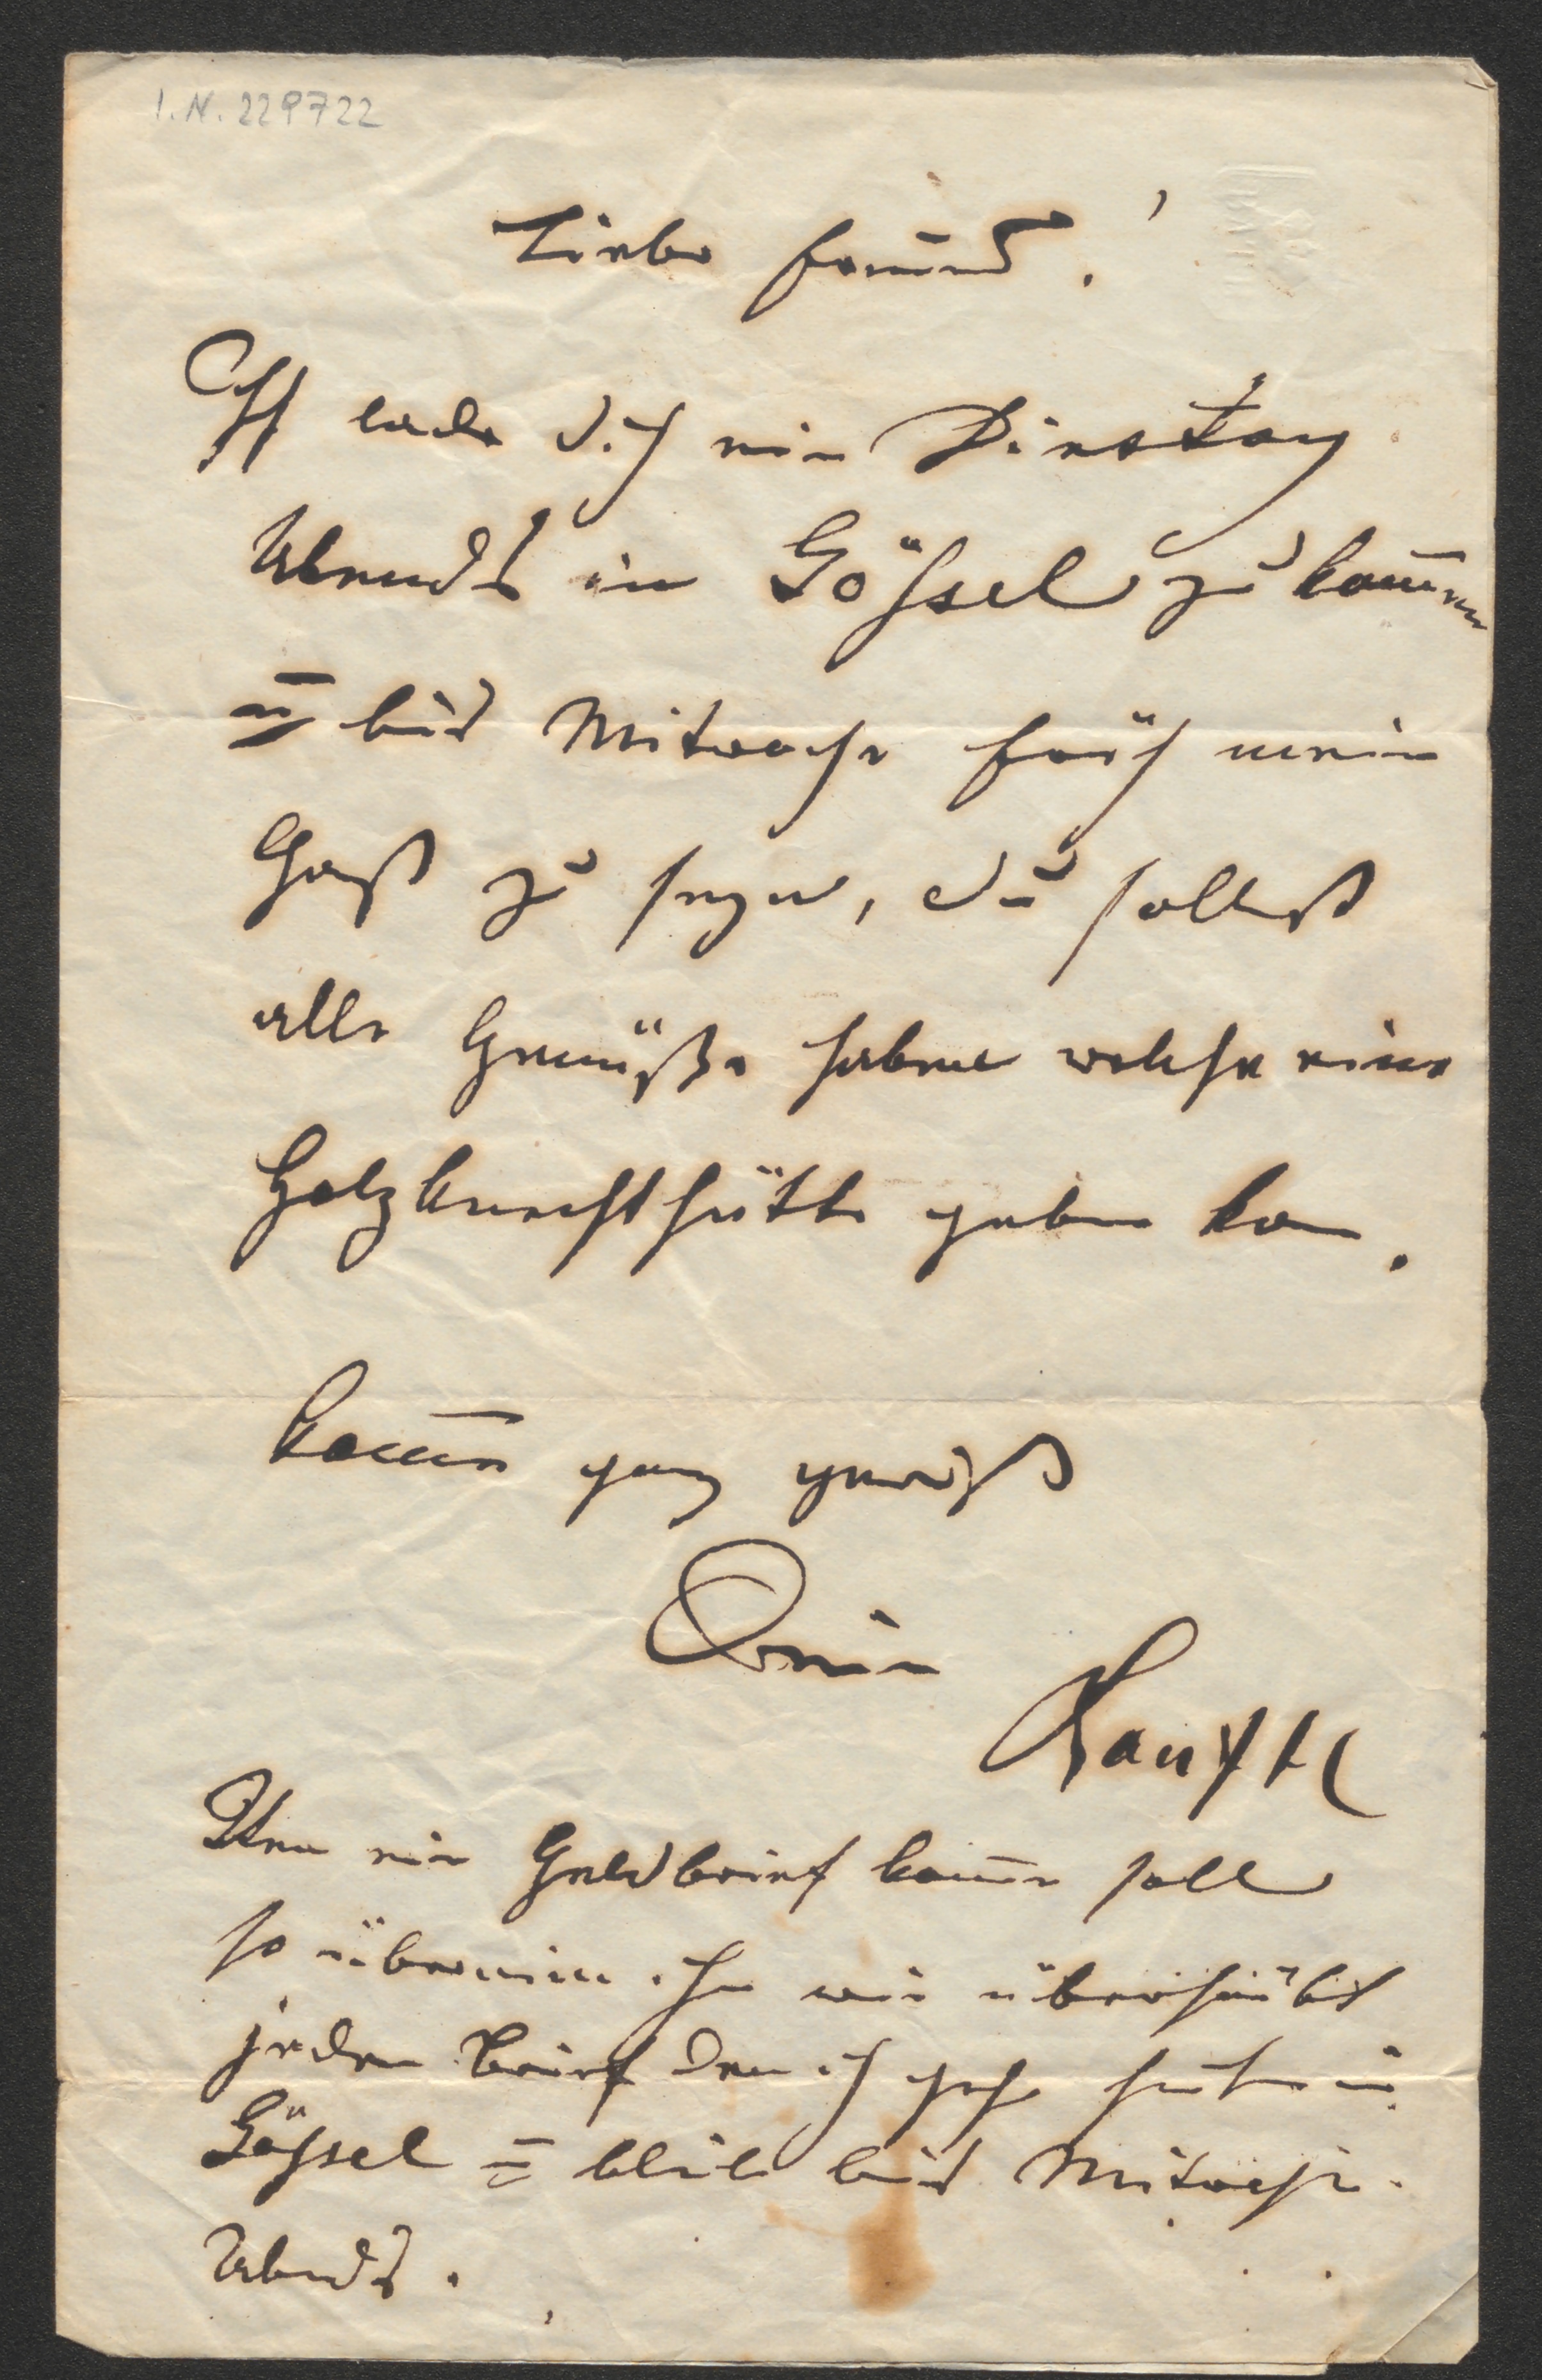 I.N. 229722
Liebe Freund!
Ich lade dich ein Dinstag
Abends in Gößsel zu kom̅en
u̅ bis Mitwoche früh mein
Gast zu seyn, du sollest
alle Genüße haben welche eine
Holzknechthütte geben kan.
kom̅e ganz gewiß
Dein
Ranftl
Wen ein Geldbrief kom̅en soll
so übernim ihn wie überhaubt
jeden Brief den ich gehe heute in
Gößsel u̅ bleibe bis Mitwoche
Abends.